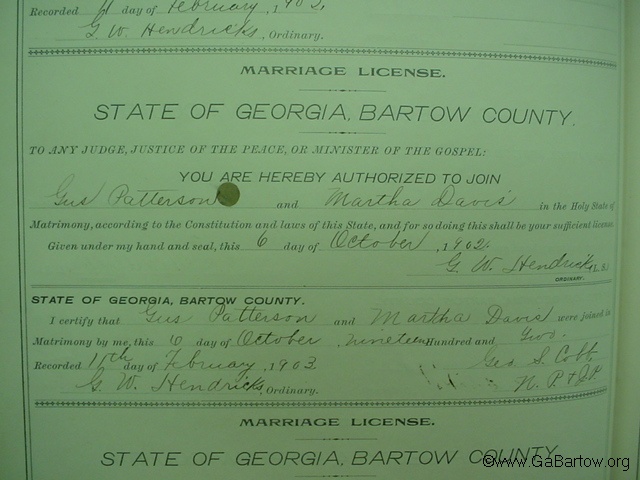 Recorded day of February, 190
G. W. Hendricks, Ordinary.
MARRIAGE LICENSE.
STATE OF GEORGIA, BARTOW COUNTY.
TO ANY JUDGE, JUSTICE OF THE PEACE, OR MINISTER OF THE GOSPEL:
YOU ARE HEREBY AUTHORIZED TO JOIN
Gus Patterson and Martha Davis in the Holy State of
Matrimony, according to the Constitution and laws of this State, and for so doing this shall be your sufficient license
Given under my hand and seal, this 6 day of October, 1902.
G. W. Hendricks (L.S.)
ORDINARY.
STATE OF GEORGIA, BARTOW COUNTY.
I certify that Gus Patterson and Martha Davis were joined in
Matrimony by me, this 6 day of October, nineteen Hundred and Two.
Recorded 11th day of February, 1903 Geo. S. Cobb
G. W. Hendricks, Ordinary. N. P. & J.P.
MARRIAGE LICENSE.
STATE OF GEORGIA, BARTOW COUNTY.
©www.GaBartow.org